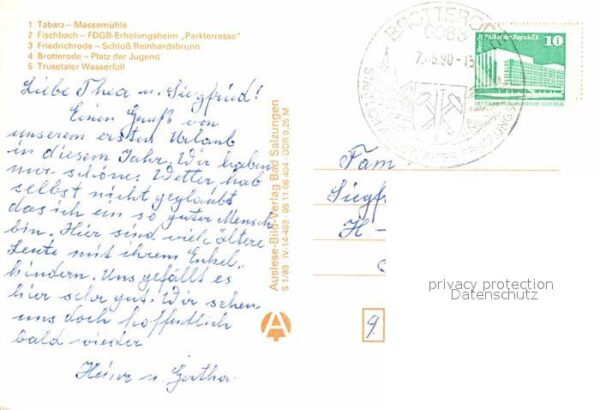 1 Tabarz – Massemühle
2 Fischbach – FDGB-Erholungsheim „Parkterrasse"
3 Friedrichroda – Schloß Reinhardsbrunn
4 Brotterode – Platz der Jugend
5 Trusetaler Wasserfall
Liebe Thea u. Siegfried!
Einen Gruß von
unserem ersten Urlaub
in diesem Jahr. Wir haben
nur schönes Wetter, hab
selbst nicht geglaubt
das ich ein so guter Mensch
bin. Hier sind viele ältere
Leute mit ihrem Enkel-
kindern. Uns gefällt es
hier sehr gut. Wir sehen
uns doch hoffentlich
bald wieder
Heinz u. Gertha.
Auslese-Bild-Verlag Bad Salzungen
S 1/89 IV-14-483 05 11 06 404 DDR 0,25 M
A
BROTTERODE
6086
5.90-13
Berlin, Palast der Republik
10
DEUTSCHE DEMOKRATISCHE REPUBLIK
Fam
Siegf
H-
9
privacy protection
Datenschutz